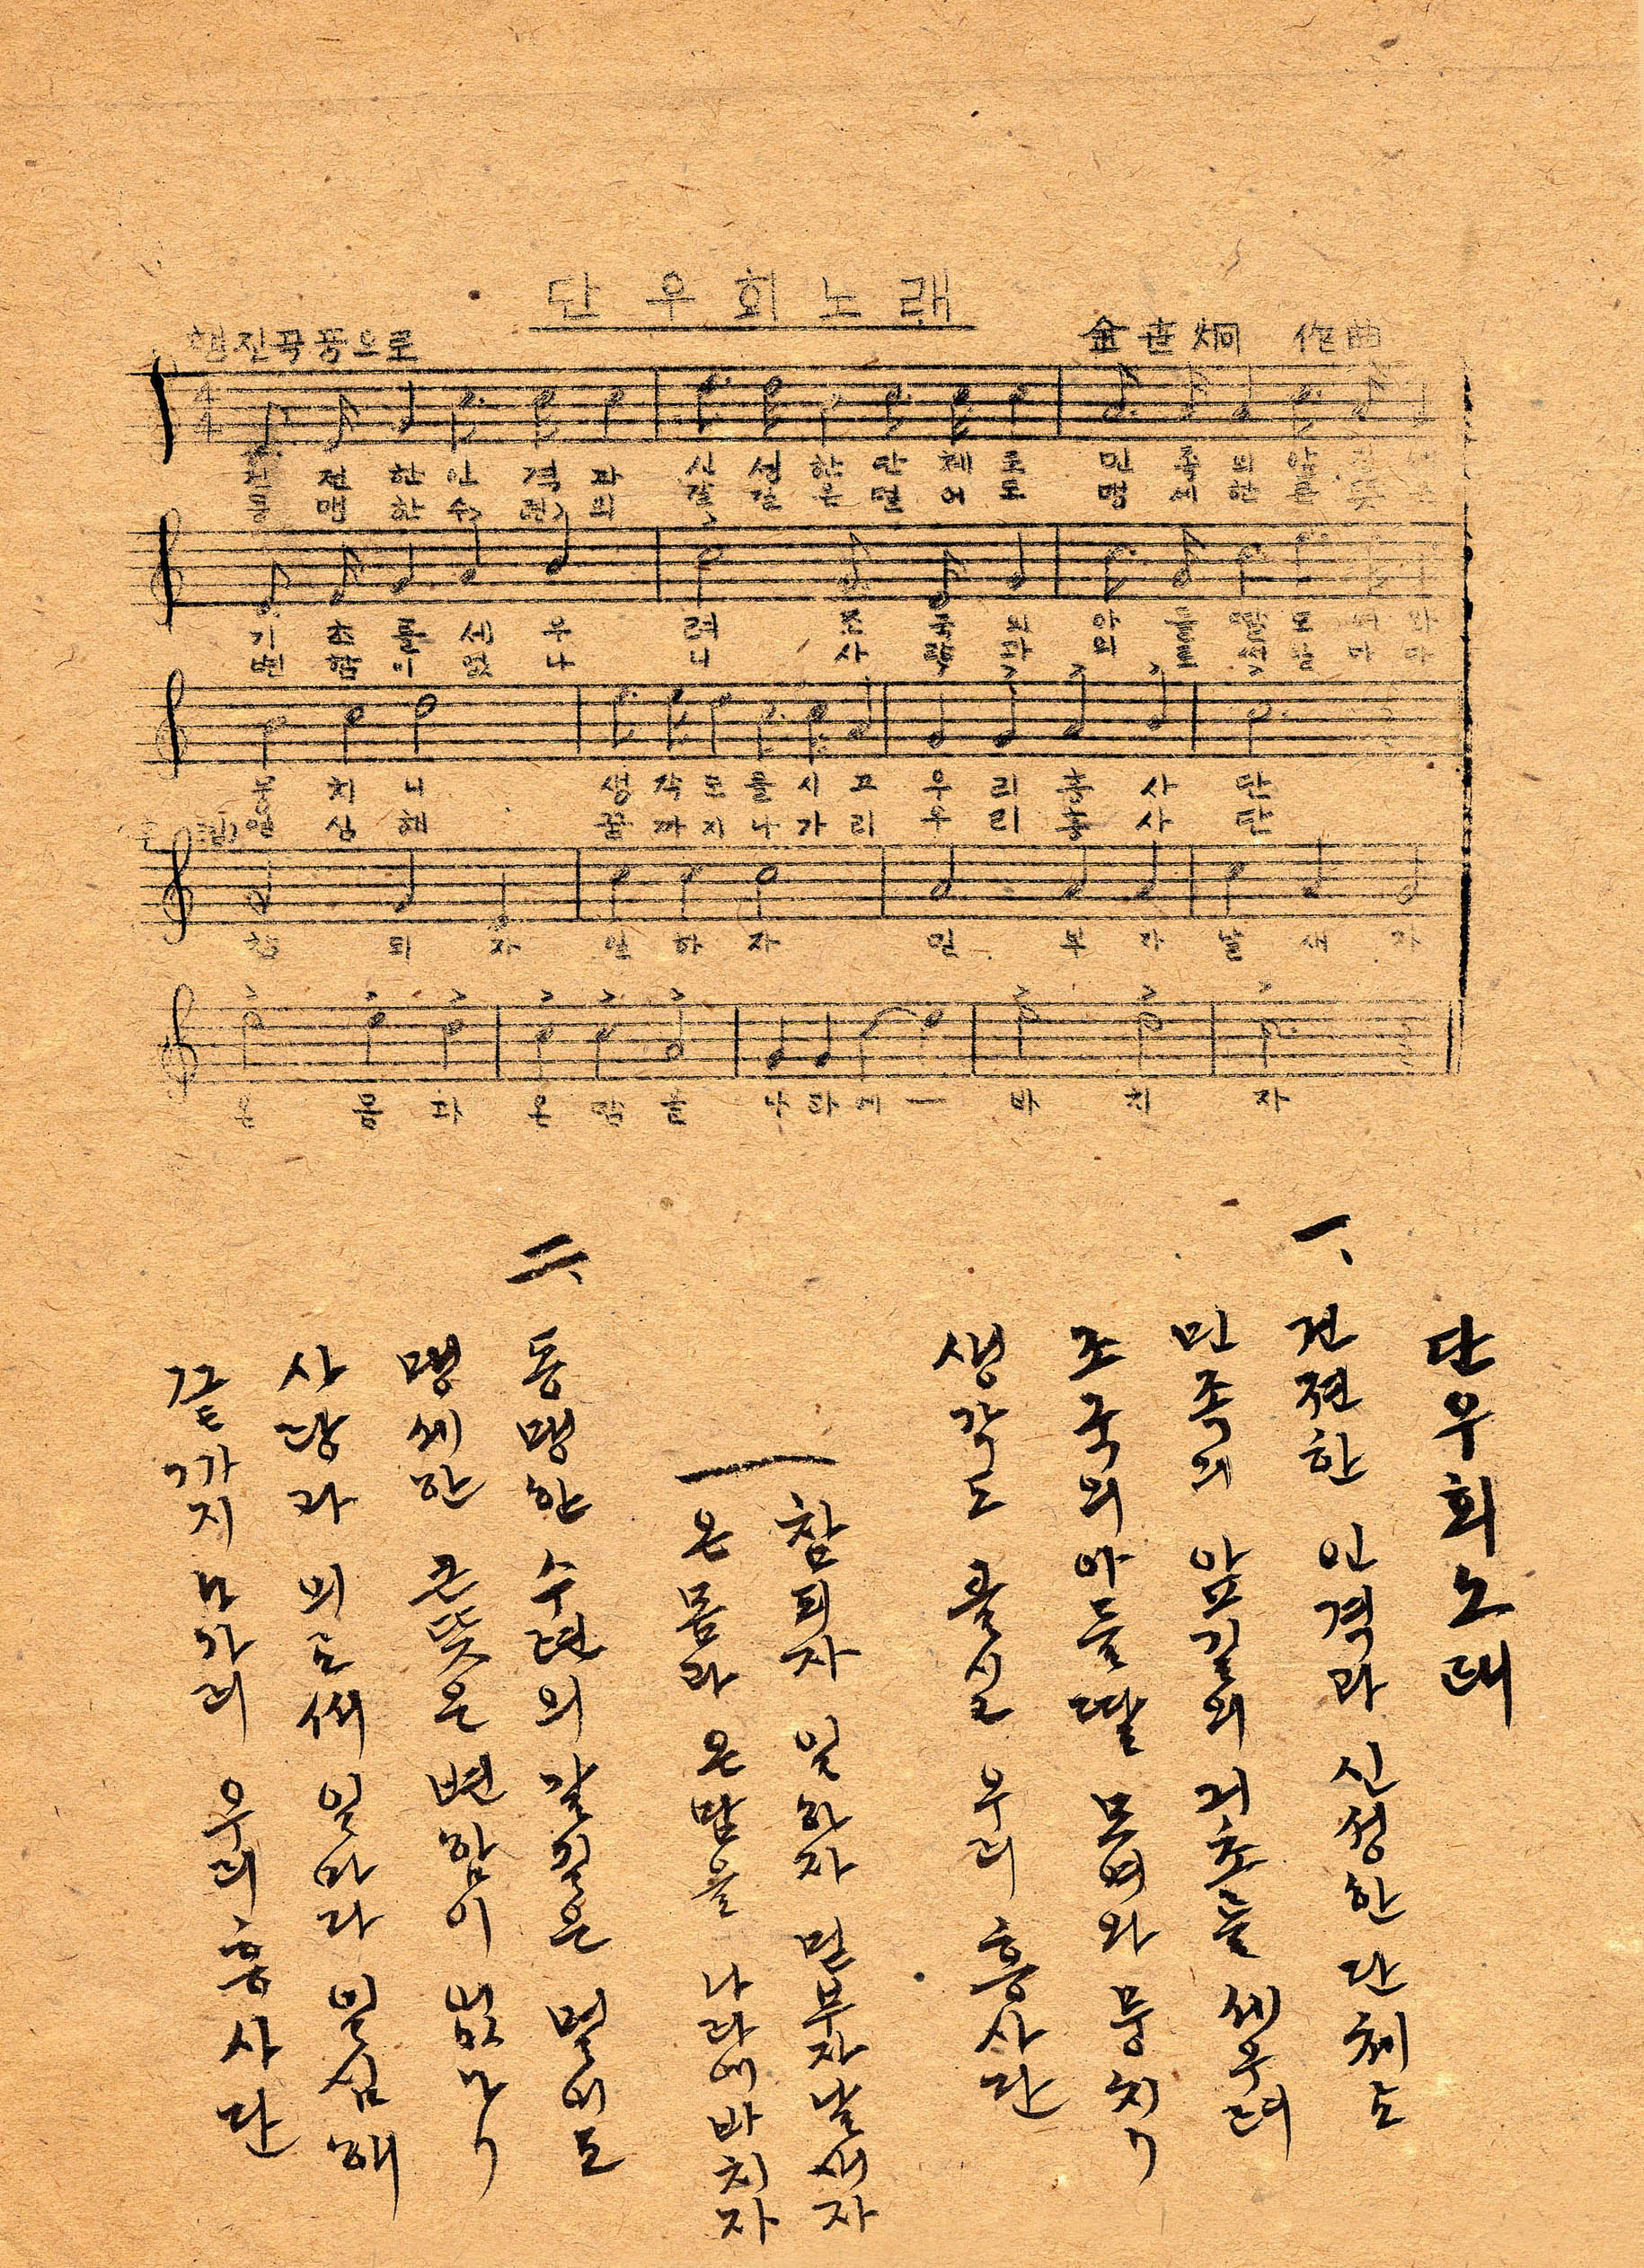 단우회노래
행진곡풍으로
金世炯 作曲
건전한인격과 신성한단체로 민족의앞길에
동맹한수련의 갈길은멀어도 맹세한큰뜻은
기초를세우려 조국의아들딸모여와
변함이없나니 사랑과의로써날마다
뭉치니 생각도를시고 우리흥사단
일심해 끝까지나가리 우리흥사단
참되자 일하자 믿부자날새자
온몸과온맘을나라에ー바치자
단우회노래
一、
건전한 인격과 신성한단체로
민족의 앞길의 기초를 세우려
조국의아들딸 모여와 뭉치니
생각도 를시고 우리 흥사단
참되자 일하자 믿부자날새자
온몸과 온맘을 나라에바치자
二、
동맹한 수련의갈길은 멀어도
맹세한 큰뜻은 변함이 없나니
사랑과 의로써 일마다 일심해
끝까지나가리 우리흥사단